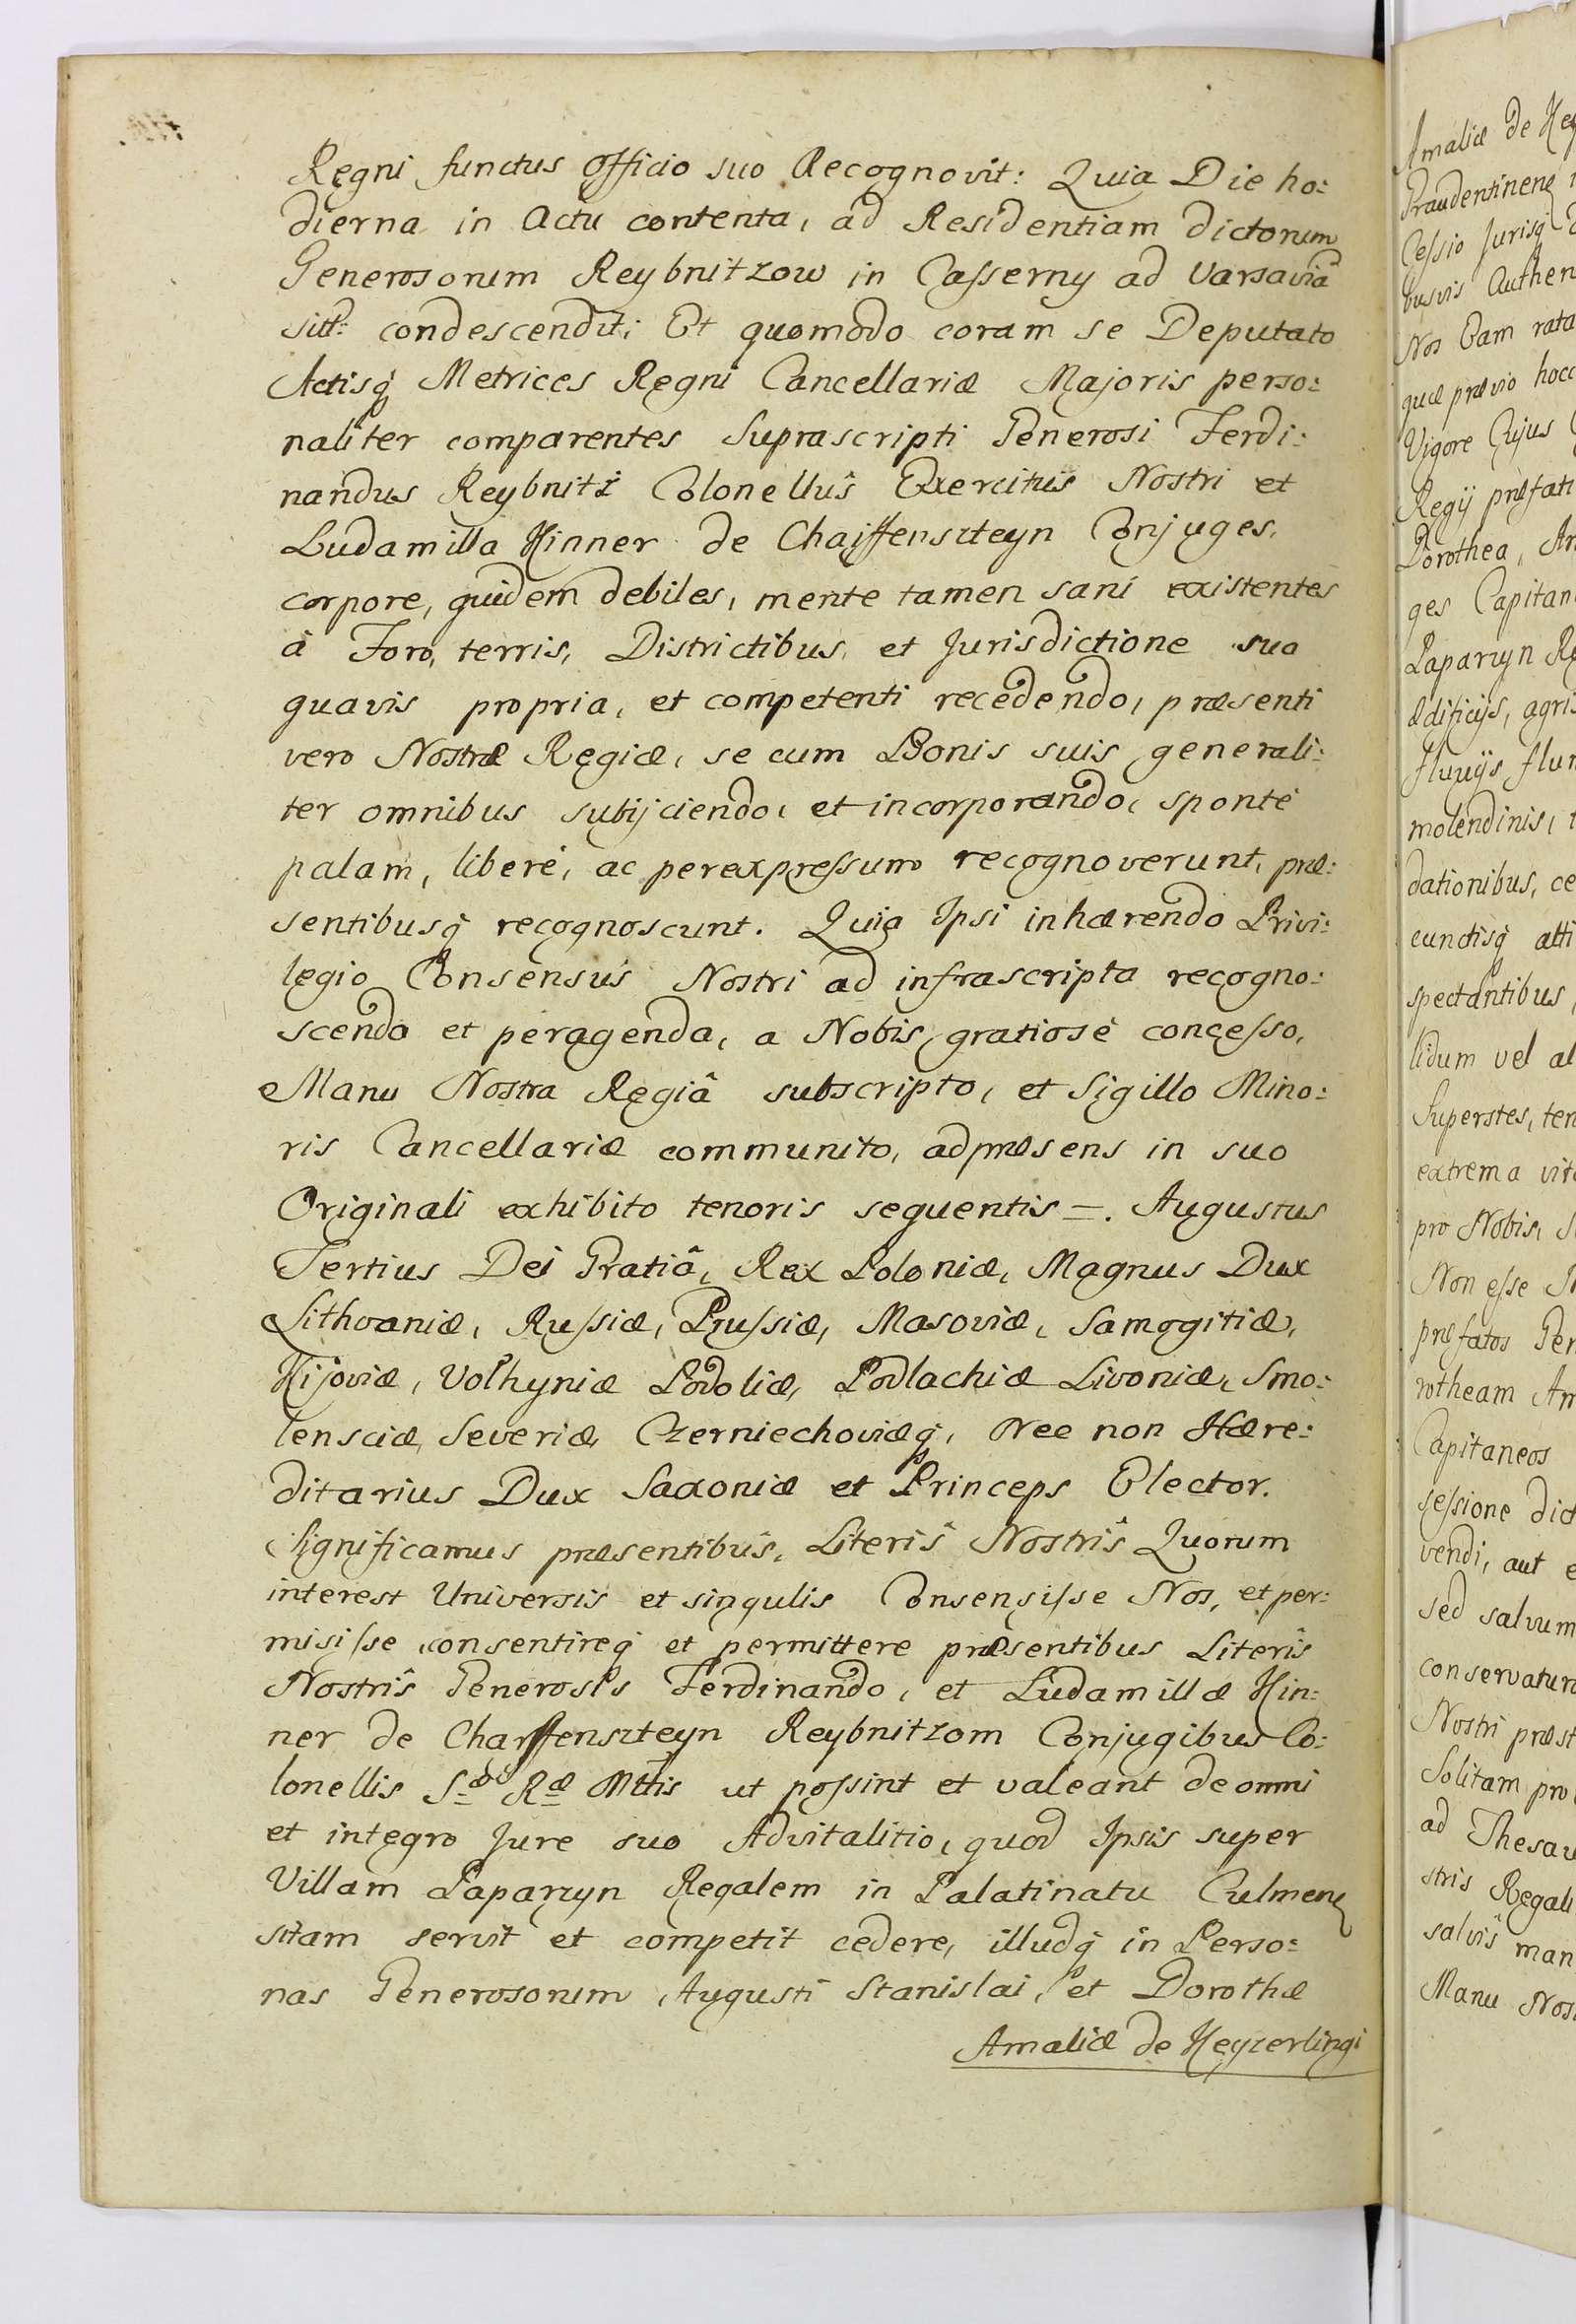 Regni functus Officio suo Recognovit: Quia Die ho:
dierna in Actu contenta, ad Residentiam dictorum
Generosorum Reybnitzow in Casserny ad Varsaviã
sitt: condescendit; Et quomodo coram se Deputato
Actisq́ Metrices Regni Cancellariæ Majoris perso:
naliter comparentes Suprascripti Generosi Ferdi:
nandus Reybnitz Colonellus Exercitus Nostri et
Ludamilla Hinner de Chaiffenszteyn Conjuges,
corpore, quidem debiles, mente tamen sani existentes
à Foro, terris, Districtibus, et Jurisdictione sua
quavis propria, et competenti recedendo, præsenti
vero Nostræ Regiæ, se cum Bonis suis generali:
ter omnibus subijciendo, et incorporando, sponte
palam, liberè, ac perexpressum recognoverunt, præ:
sentibusq́ recognoscunt. Quia Ipsi inhærendo Privi:
legio Consensûs Nostri ad infrascripta recogno:
scenda et peragenda, a Nobis gratiosè concesso,
Manu Nostra Regiâ subscripto, et Sigillo Mino:
ris Cancellariæ communito, adpræsens in suo
Originali exhibito tenoris sequentis =. Augustus
Tertius Dei Gratiâ, Rex Poloniæ, Magnus Dux
Lithvaniæ, Russiæ, Prussiæ, Masoviæ, Samogitiæ,
Kijoviæ, Volhyniæ Podoliæ, Podlachiæ Livoniæ, Smo:
lensciæ, Severiæ, Czerniechoviæq́, Nec non Hære:
ditarius Dux Saxoniæ et Princeps Elector.
Significamus præsentibûs, Literîs Nostrîs Quorum
interest Universis et singulis Consensisse Nos, et per:
misisse consentireq́ et permittere præsentibus Literîs
Nostrîs Generosis Ferdinando, et Ludamillæ Hin:
ner de Charffenszteyn Reybnitzom Conjugibus Co:
lonellis S<u>æ</u> R<u>æ</u> Mttis ut possint et valeant de omni
et integro Jure suo Advitalitio, quod Ipsis super
Villam Paparzyn Regalem in Palatinatu Culmenę
sitam servit et competit cedere, illudq́ in Perso:
nas Generosorum Augusti Stanislai, et Dorothæ
Amaliæ de Keyzerlingi
Amaliæ de Key
Cessio Jurisq́
busvis Authen
Nos Eam rata
quæ prævio hocc
Vigore Cujus
Regij præfati
Dorothea, Am
ges Capitan
Paparzyn Re
ædificijs, agris
fluvijs flum
molendinis,
dationibus, ce
cunctisq́ atti
spectantibus,
lidum vel al
Superstes, ten
extrema vitæ
pro Nobis, S
Non esse
præfatos Gen
rotheam Am
Capitaneos
sessione dict
vendi, aut e
sed salvum
conservatur
Nostri præst
Solitam pro
ad Thesau
stris Regali
salvîs man
Manu Nos